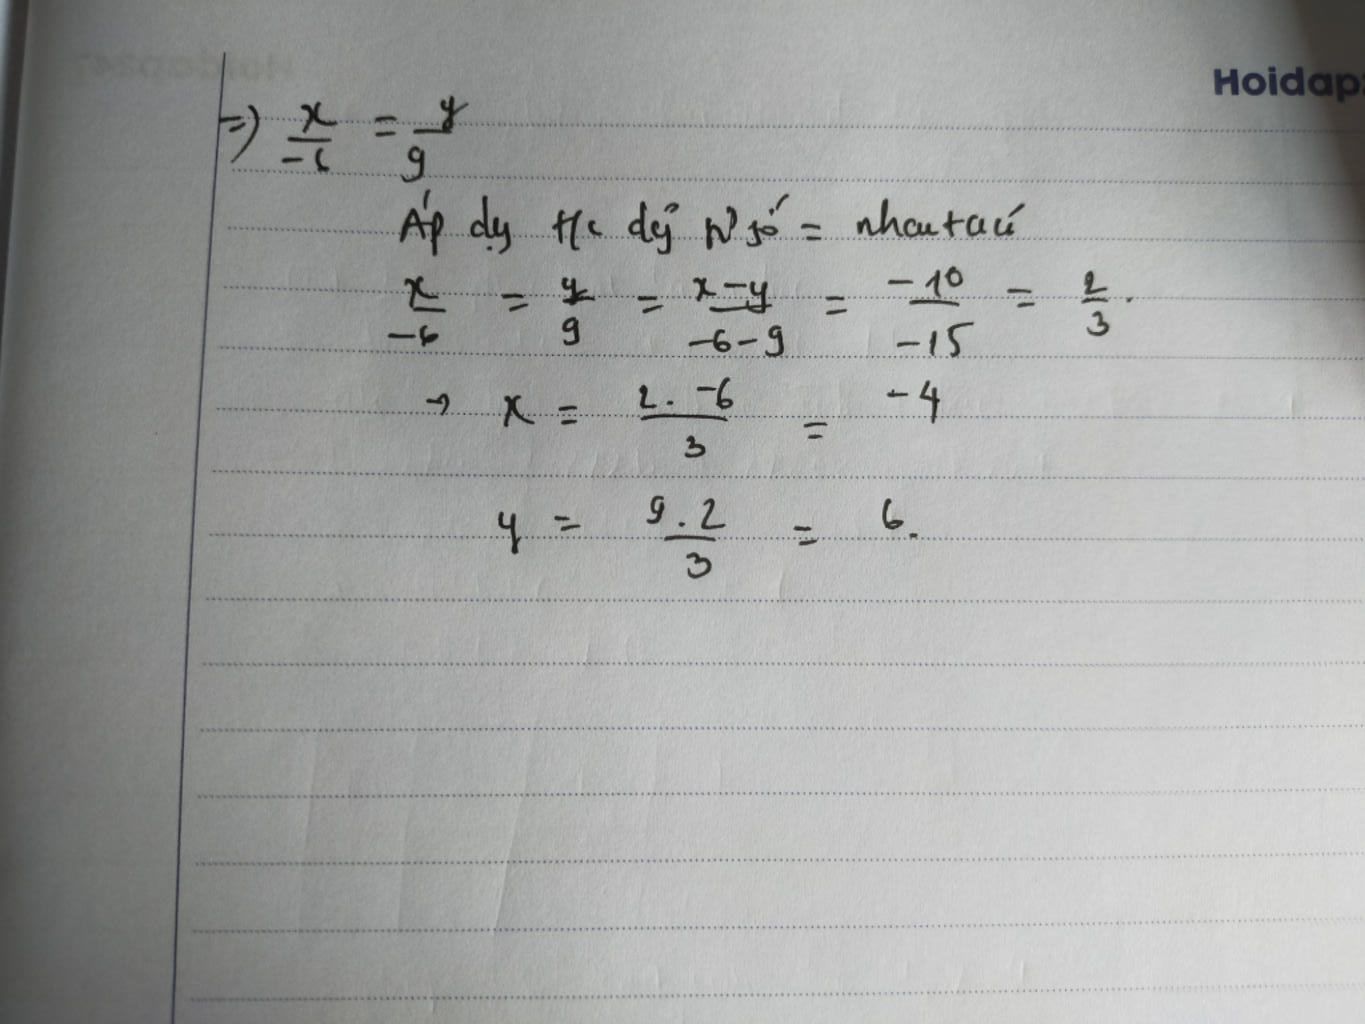 Hoidap
=> x/-6 = y/9
Áp dg t/c dãy tỉ số = nhau ta có
x/-6 = y/9 = x-y/-6-9 = -10/-15 = 2/3.
→ x = 2.-6/3 = -4
y = 9.2/3 = 6.